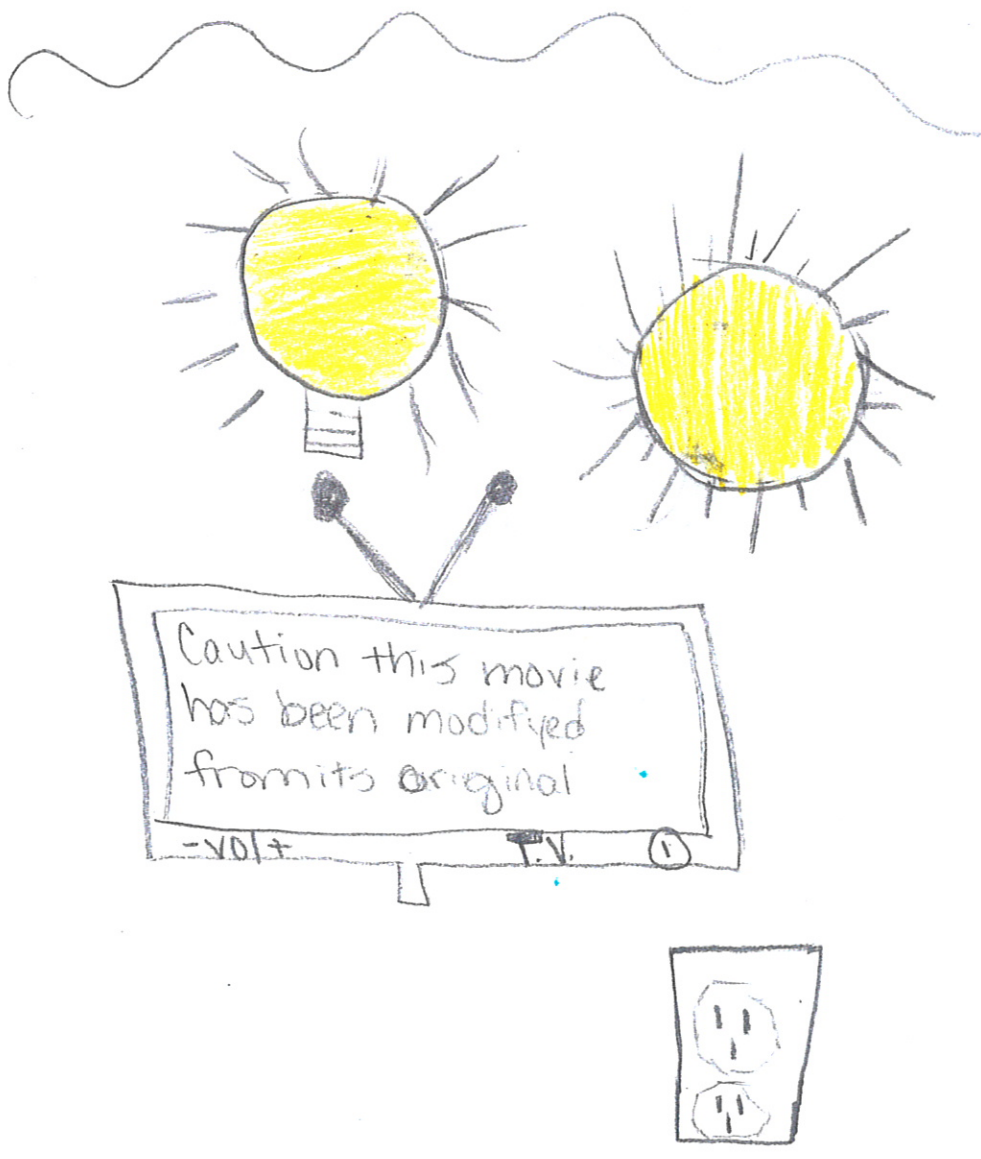 Caution this movie
has been modifyed
from its original
- VOL +
T.V.